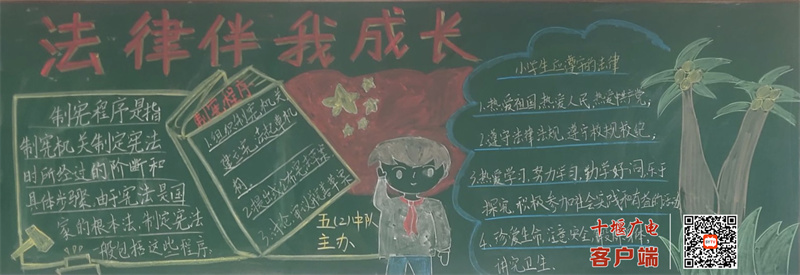 法律伴我成长
制宪程序是指
制宪机关制定宪法
时所经过的阶断和
具体步骤，由于宪法是国
家的根本法，制定宪法
一般包括这些程序.
制宪程序
1.组织制宪机关
构
五(2)中队
主办
小学生应遵守的法律
1.热爱祖国,热爱人民,热爱共产党,
2.遵守法律法规,遵守校规校纪,
3.热爱学习,努力学习,勤学好问,乐于
探究,积极参加社会实践和有益的活动
4.珍爱生命,注意安全,
讲究卫生.
十堰广电
客户端